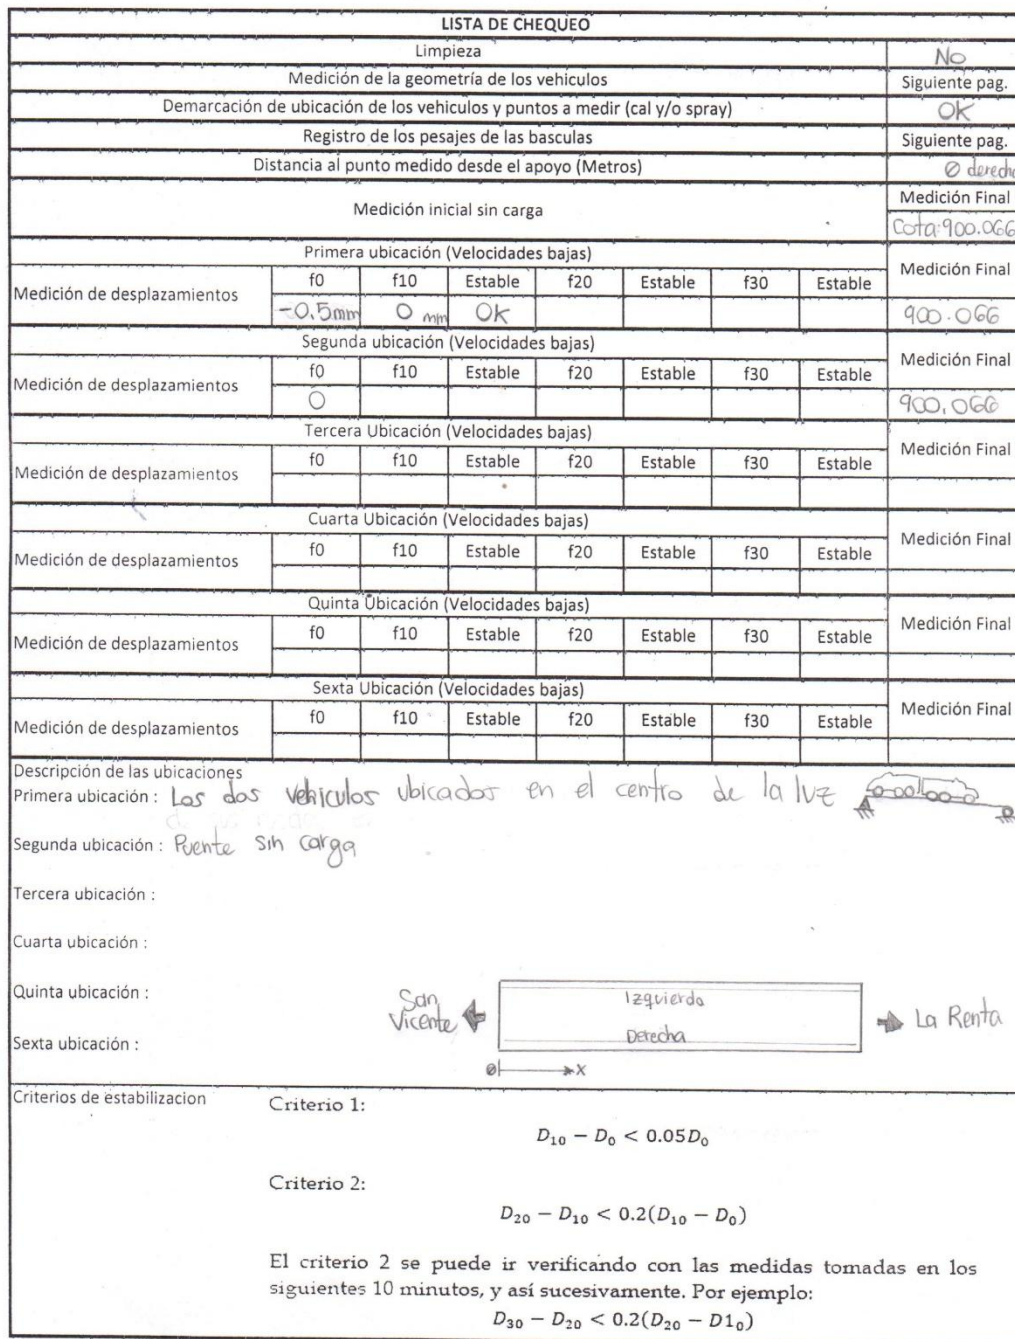 LISTA DE CHEQUEO
Limpieza No
Medición de la geometría de los vehiculos Siguiente pag.
Demarcación de ubicación de los vehiculos y puntos a medir (cal y/o spray) OK
Registro de los pesajes de las basculas Siguiente pag.
Distancia al punto medido desde el apoyo (Metros) Ø derecha
Medición inicial sin carga Medición Final
Cota:900.066
Primera ubicación (Velocidades bajas) Medición Final
Medición de desplazamientos f0 f10 Estable f20 Estable f30 Estable
-0.5mm 0 mm OK 900.066
Segunda ubicación (Velocidades bajas) Medición Final
Medición de desplazamientos f0 f10 Estable f20 Estable f30 Estable
0 900.066
Tercera Ubicación (Velocidades bajas) Medición Final
Medición de desplazamientos f0 f10 Estable f20 Estable f30 Estable
Cuarta Ubicación (Velocidades bajas) Medición Final
Medición de desplazamientos f0 f10 Estable f20 Estable f30 Estable
Quinta Ubicación (Velocidades bajas) Medición Final
Medición de desplazamientos f0 f10 Estable f20 Estable f30 Estable
Sexta Ubicación (Velocidades bajas) Medición Final
Medición de desplazamientos f0 f10 Estable f20 Estable f30 Estable
Descripción de las ubicaciones
Primera ubicación : Los dos vehiculos ubicados en el centro de la luz
Segunda ubicación : Puente sin carga
Tercera ubicación :
Cuarta ubicación :
Quinta ubicación :
Sexta ubicación :
San Vicente
Izquierda
Derecha
La Renta
Ø x
Criterios de estabilizacion
Criterio 1:
D₁₀ − D₀ < 0.05D₀
Criterio 2:
D₂₀ − D₁₀ < 0.2(D₁₀ − D₀)
El criterio 2 se puede ir verificando con las medidas tomadas en los
siguientes 10 minutos, y así sucesivamente. Por ejemplo:
D₃₀ − D₂₀ < 0.2(D₂₀ − D1₀)